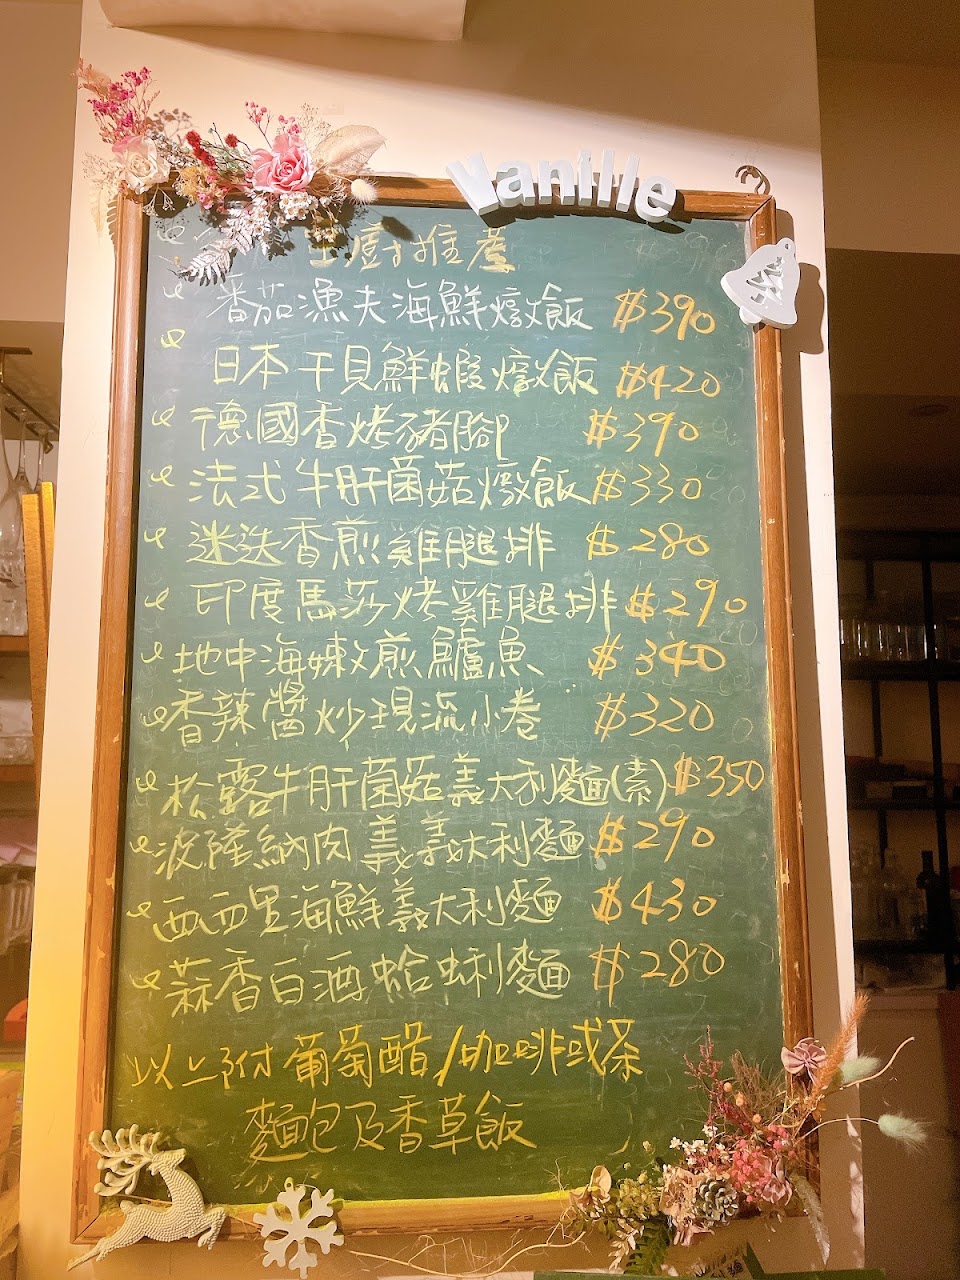 Vanille
主廚推薦
番茄漁夫海鮮燉飯 $390
日本干貝鮮蝦燉飯 $420
德國香烤豬腳 $390
法式牛肝菌菇燉飯 $330
迷迭香煎雞腿排 $280
印度馬莎烤雞腿排 $290
地中海嫩煎鱸魚 $340
香辣醬炒現流小卷 $320
松露牛肝菌菇義大利麵(素) $350
波隆納肉義大利麵 $290
西西里海鮮義大利麵 $430
蒜香白酒蛤蜊麵 $280
以上附葡萄醋/咖啡或茶
麵包及香草飯